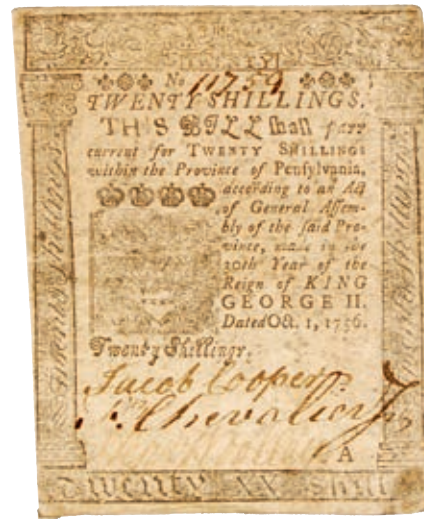 No 11759
TWENTY SHILLINGS.
THIS BILL shall pass
current for TWENTY SHILLINGS
within the Province of Pensylvania,
according to an Act
of General Assem-
bly of the said Pro-
vince, made in the
30th Year of the
Reign of KING
GEORGE II.
Dated Oct. 1, 1756.
Twenty Shillings.
Jacob Cooper
Chevalier
A
Twenty XX Shill
Twenty Shillings